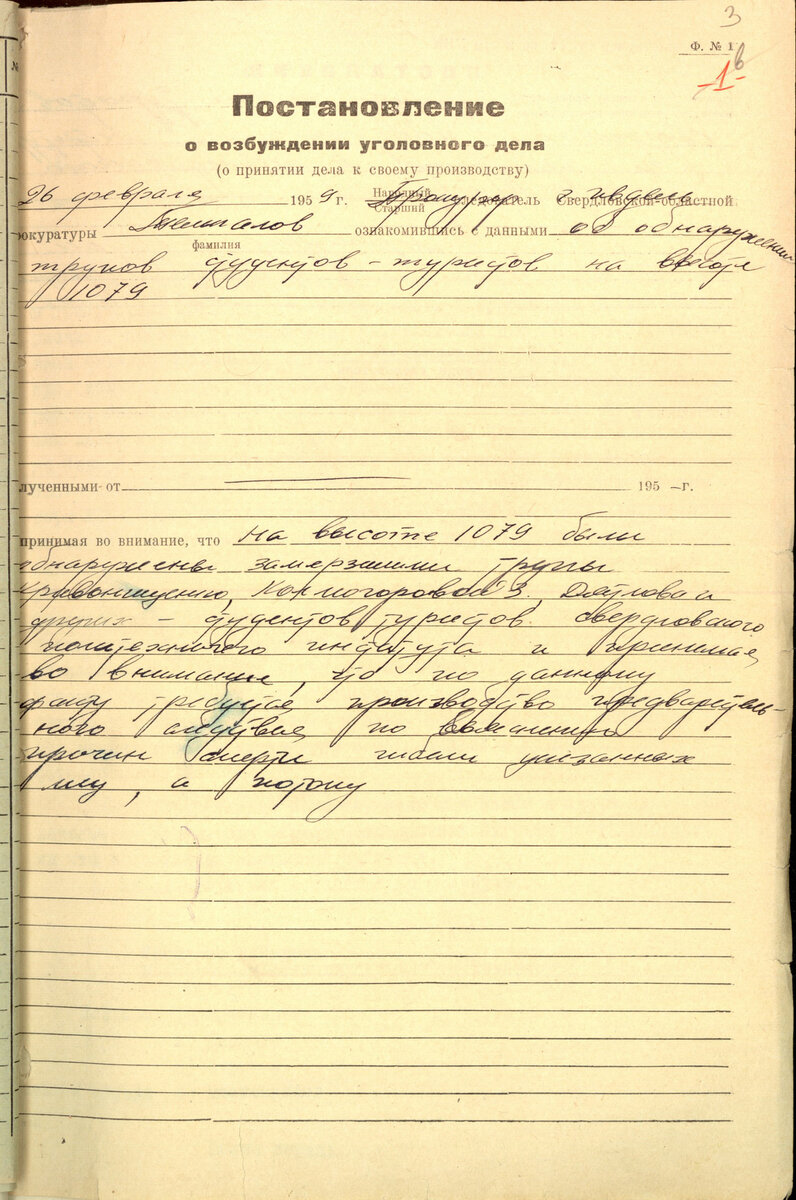 3
Ф. № 1
6
-1-
Постановление
о возбуждении уголовного дела
(о принятии дела к своему производству)
26 февраля 1959 г. Народный Старший Прокурор следователь г. Ивдель Свердловской областной
рокуратуры Темпалов ознакомившись с данными об обнаружении
фамилия
трупов студентов-туристов на высоте
1079
лученными от 195 – г.
принимая во внимание, что на высоте 1079 были
обнаружены замерзшими трупы
Кривонищенко, Колмогоровой З., Дятлова и
других – студентов туристов свердловского
политехничего института и принимая
во внимание, что по данному
факту требуется производство предваритель-
ного следствия по выяснению
причин смерти гибели указанных
лиц, а потому